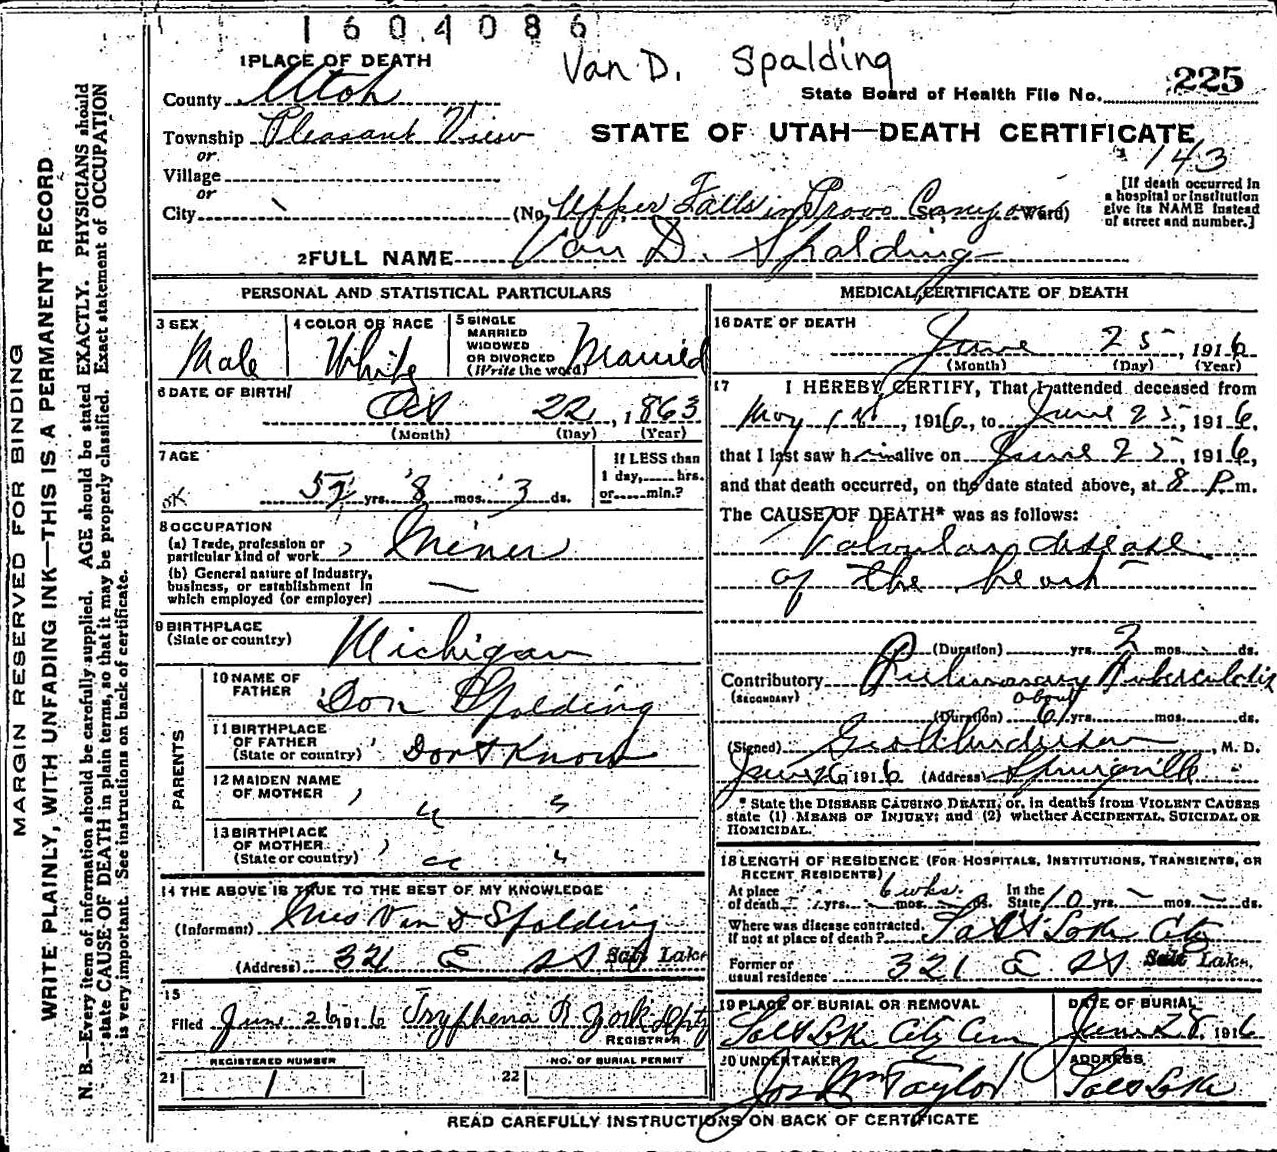 1604086
Van D. Spalding
225
1 PLACE OF DEATH
State Board of Health File No.
County Utah
Township Pleasant View
STATE OF UTAH—DEATH CERTIFICATE
143
or
Village
or
City
(No. Upper Falls in Provo Canyon St., Ward)
[If death occurred in a hospital or institution give its NAME instead of street and number.]
2 FULL NAME Van D. Spalding
PERSONAL AND STATISTICAL PARTICULARS
3 SEX Male
4 COLOR OR RACE White
5 SINGLE MARRIED WIDOWED OR DIVORCED (Write the word) Married
6 DATE OF BIRTH
Oct 22, 1863
(Month) (Day) (Year)
7 AGE
OK
52 yrs. 8 mos. 3 ds.
If LESS than 1 day, hrs. or min.?
8 OCCUPATION
(a) Trade, profession or particular kind of work Miner
(b) General nature of industry, business, or establishment in which employed (or employer) —
9 BIRTHPLACE
(State or country) Michigan
PARENTS
10 NAME OF FATHER Don Spalding
11 BIRTHPLACE OF FATHER (State or country) Don't Know
12 MAIDEN NAME OF MOTHER " "
13 BIRTHPLACE OF MOTHER (State or country) " "
14 THE ABOVE IS TRUE TO THE BEST OF MY KNOWLEDGE
(Informant) Mrs Van D Spalding
(Address) 321 E St Salt Lake
15
Filed June 26 1916 Tryphena R York Dpty
REGISTRAR
REGISTERED NUMBER
21 1
NO. OF BURIAL PERMIT
22
MEDICAL CERTIFICATE OF DEATH
16 DATE OF DEATH
June 25, 1916
(Month) (Day) (Year)
17 I HEREBY CERTIFY, That I attended deceased from
May 1st, 1916, to June 25, 1916,
that I last saw him alive on June 25, 1916,
and that death occurred, on the date stated above, at 8 P. m.
The CAUSE OF DEATH* was as follows:
Valvular disease
of the heart
(Duration) yrs. 2 mos. ds.
Contributory Pulmonary Tuberculosis
(SECONDARY)
about
(Duration) 6 yrs. mos. ds.
(Signed) Geo Anderson, M. D.
June 26 1916 (Address) Springville
* State the DISEASE CAUSING DEATH, or, in deaths from VIOLENT CAUSES
state (1) MEANS OF INJURY; and (2) whether ACCIDENTAL, SUICIDAL OR
HOMICIDAL.
18 LENGTH OF RESIDENCE (FOR HOSPITALS, INSTITUTIONS, TRANSIENTS, OR
RECENT RESIDENTS)
At place of death yrs. mos. 6 wks. ds. In the State 10 yrs. — mos. — ds.
Where was disease contracted, if not at place of death? Salt Lake City
Former or usual residence 321 E St Salt Lake
19 PLACE OF BURIAL OR REMOVAL
Salt Lake City Cem
DATE OF BURIAL
June 28, 1916
20 UNDERTAKER
Jos Wm Taylor
ADDRESS
Salt Lake
READ CAREFULLY INSTRUCTIONS ON BACK OF CERTIFICATE
MARGIN RESERVED FOR BINDING
WRITE PLAINLY, WITH UNFADING INK—THIS IS A PERMANENT RECORD
N. B.—Every item of information should be carefully supplied. AGE should be stated EXACTLY. PHYSICIANS should
state CAUSE OF DEATH in plain terms, so that it may be properly classified. Exact statement of OCCUPATION
is very important. See instructions on back of certificate.